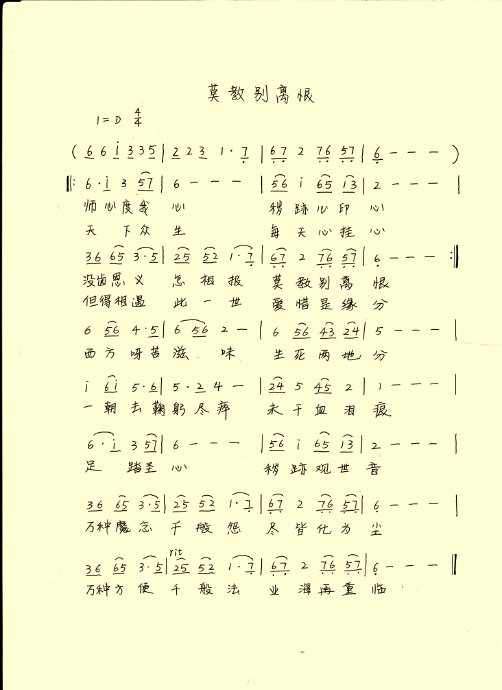 莫教别离恨
1=D 4/4
( 6 6 i 3 3 5 | 2 2 3 1 · 7 | 6 7 2 7 6 5 7 | 6 - - - )
‖: 6 · i 3 5 7 | 6 - - - | 5 6 i 6 5 i 3 | 2 - - - |
师心度我心 秽跡心印心
天下众生 每天心挂心
3 6 6 5 3 · 5 | 2 5 5 2 1 · 7 | 6 7 2 7 6 5 7 | 6 - - - :‖
没齿恩义 怎相报 莫教别离恨
但得相遇 此一世 爱惜是缘分
6 5 6 4 · 5 | 6 5 6 2 - | 6 5 6 4 3 2 4 | 5 - - - |
西方呀苦滋味 生死两地分
i 6 i 5 · 6 | 5 · 2 4 - | 2 4 5 4 5 2 | 1 - - - |
一朝去鞠躬尽瘁 未干血泪痕
6 · i 3 5 7 | 6 - - - | 5 6 i 6 5 i 3 | 2 - - - |
足踏圣心 秽跡观世音
3 6 6 5 3 · 5 | 2 5 5 2 1 · 7 | 6 7 2 7 6 5 7 | 6 - - - |
万种魔念 千般怨 尽皆化为尘
rit
3 6 6 5 3 · 5 | 2 5 5 2 1 · 7 | 6 7 2 7 6 5 7 | 6 - - - ‖
万种方便 千般法 业海再重临